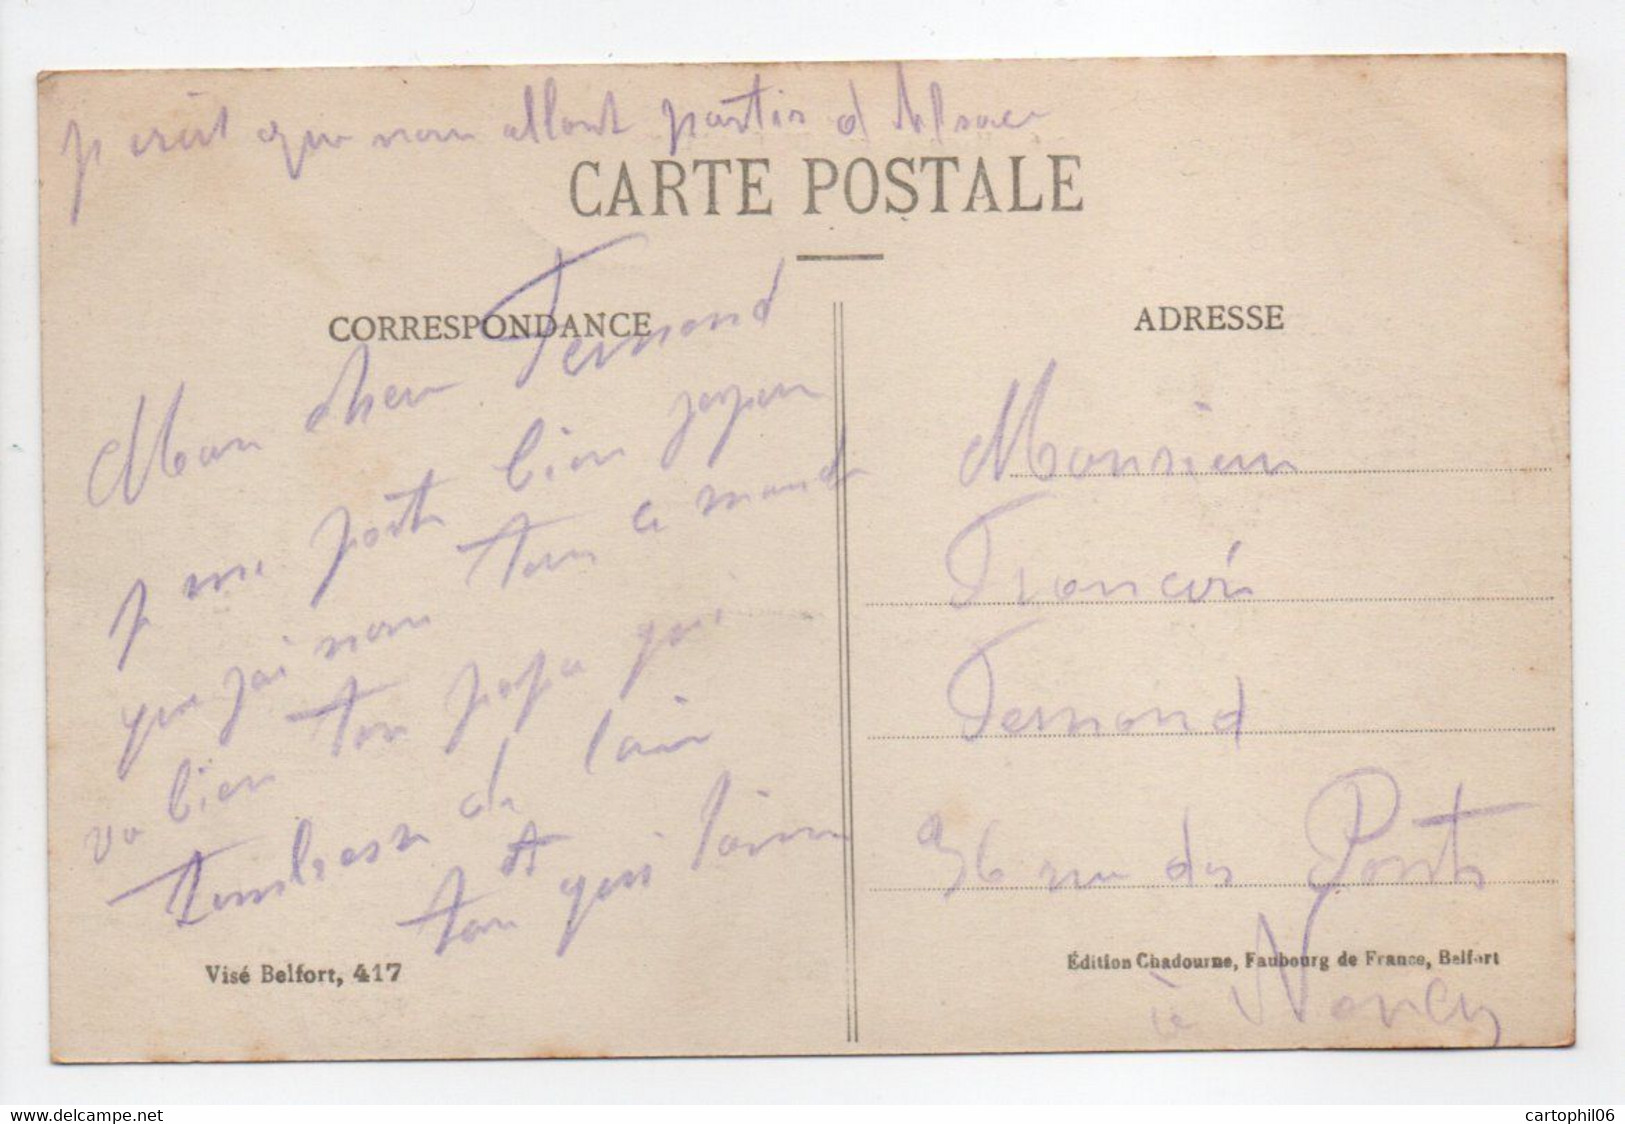 j croit que nou allont partir d Alsace
CARTE POSTALE
CORRESPONDANCE
Mon cher Fernand
j me porte bien
que j'ai nou ce monde
va bien ton papa qui
tembrasse de loin
et
ton qui t'aime
Visé Belfort, 417
ADRESSE
Monsieur
Fernand
36 rue des Ponts
à Nancy
Édition Chadourne, Faubourg de France, Belfort
www.delcampe.net
cartophil06